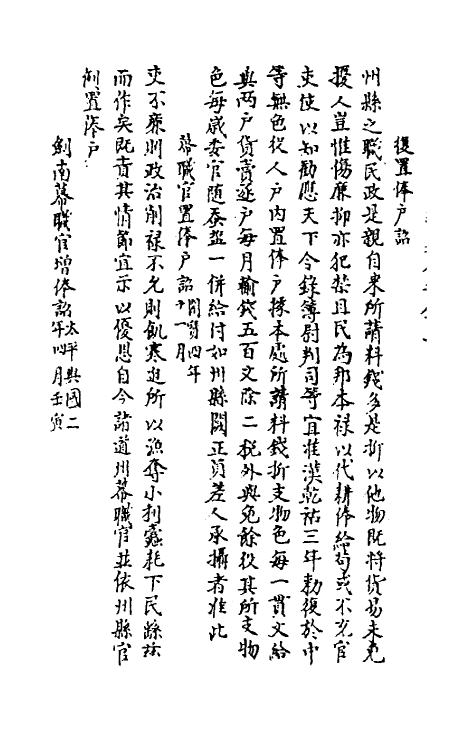 復置俸戶詔
州縣之職民政是親自來所請料錢多是折以他物旣將貨易未免
擾人豈惟傷廉抑亦犯禁且民為邦本祿以代耕俸給苟或不充官
吏使以知勸應天下令錄簿尉判司等宜准漢乾祐三年勅復於中
等無色役人戶內置俸戶據本處所請料錢折支物色每一貫文給
與兩戶貨賣逐戶每月輸錢五百文除二稅外與免餘役其所支物
色每歲委官隨蚕盐一併給付如州縣闕正員差人承攝者准此
幕職官置俸戶詔開寶四年十一月
吏不廉則政治削祿不充則飢寒迫所以漁奪小利蠹耗下民繇茲
而作矣旣責其情節宜示以優恩自今諸道州幕職官並依州縣官
例置俸戶
劍南幕職官增俸詔太平興國二年四月壬寅